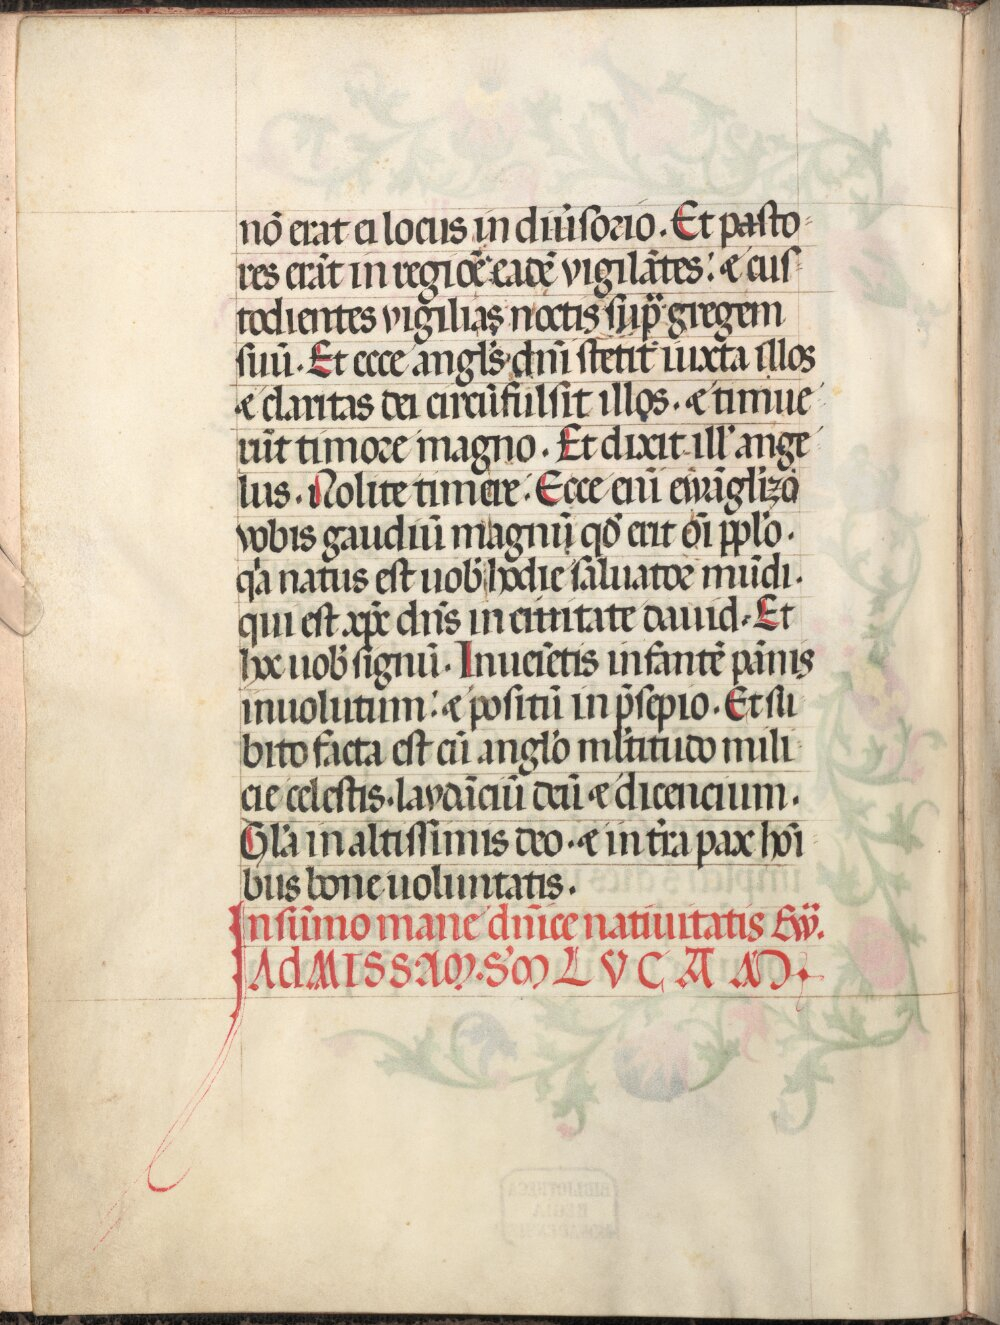 nō erat ei locus in diūſorio. Et paſto⸗
res erāt in regiōe eadē vigilātes: ⁊ cuſ⸗
todientes vigilias noctis ſup̄ gregem
ſuū. Et ecce angl's dn̄i ſtetit iuxta illos
⁊ claritas dei circūfulſit illos. ⁊ timue⸗
rūt timore magno. Et dixit ill' ange⸗
lus. Nolite timere. Ecce eni̅ ewāgl'izo
vobis gaudiū magnū qd' erit oi̅ ppl'o.
qa natus eſt uob' hodie ſaluator mūdi.
qui eſt xp̄c dn̄s in cittitate dauid. Et
hoc uob' ſignū. Inueiētis infantē pānis
inuolutum: ⁊ poſitū in p̄ſepio. Et ſu
bito facta eſt cū angl'o ml'titudo mili
cie celeſtis. laudāciū deū ⁊ dicencium.
Gl'a in altiſſimis deo. ⁊ in t̄ra pax hoi̅⸗
bus bone uoluntatis.
In ſūmo mane dn̄ice natiuitatis Ew̄.
AD MISSAM. SM LVCAM.